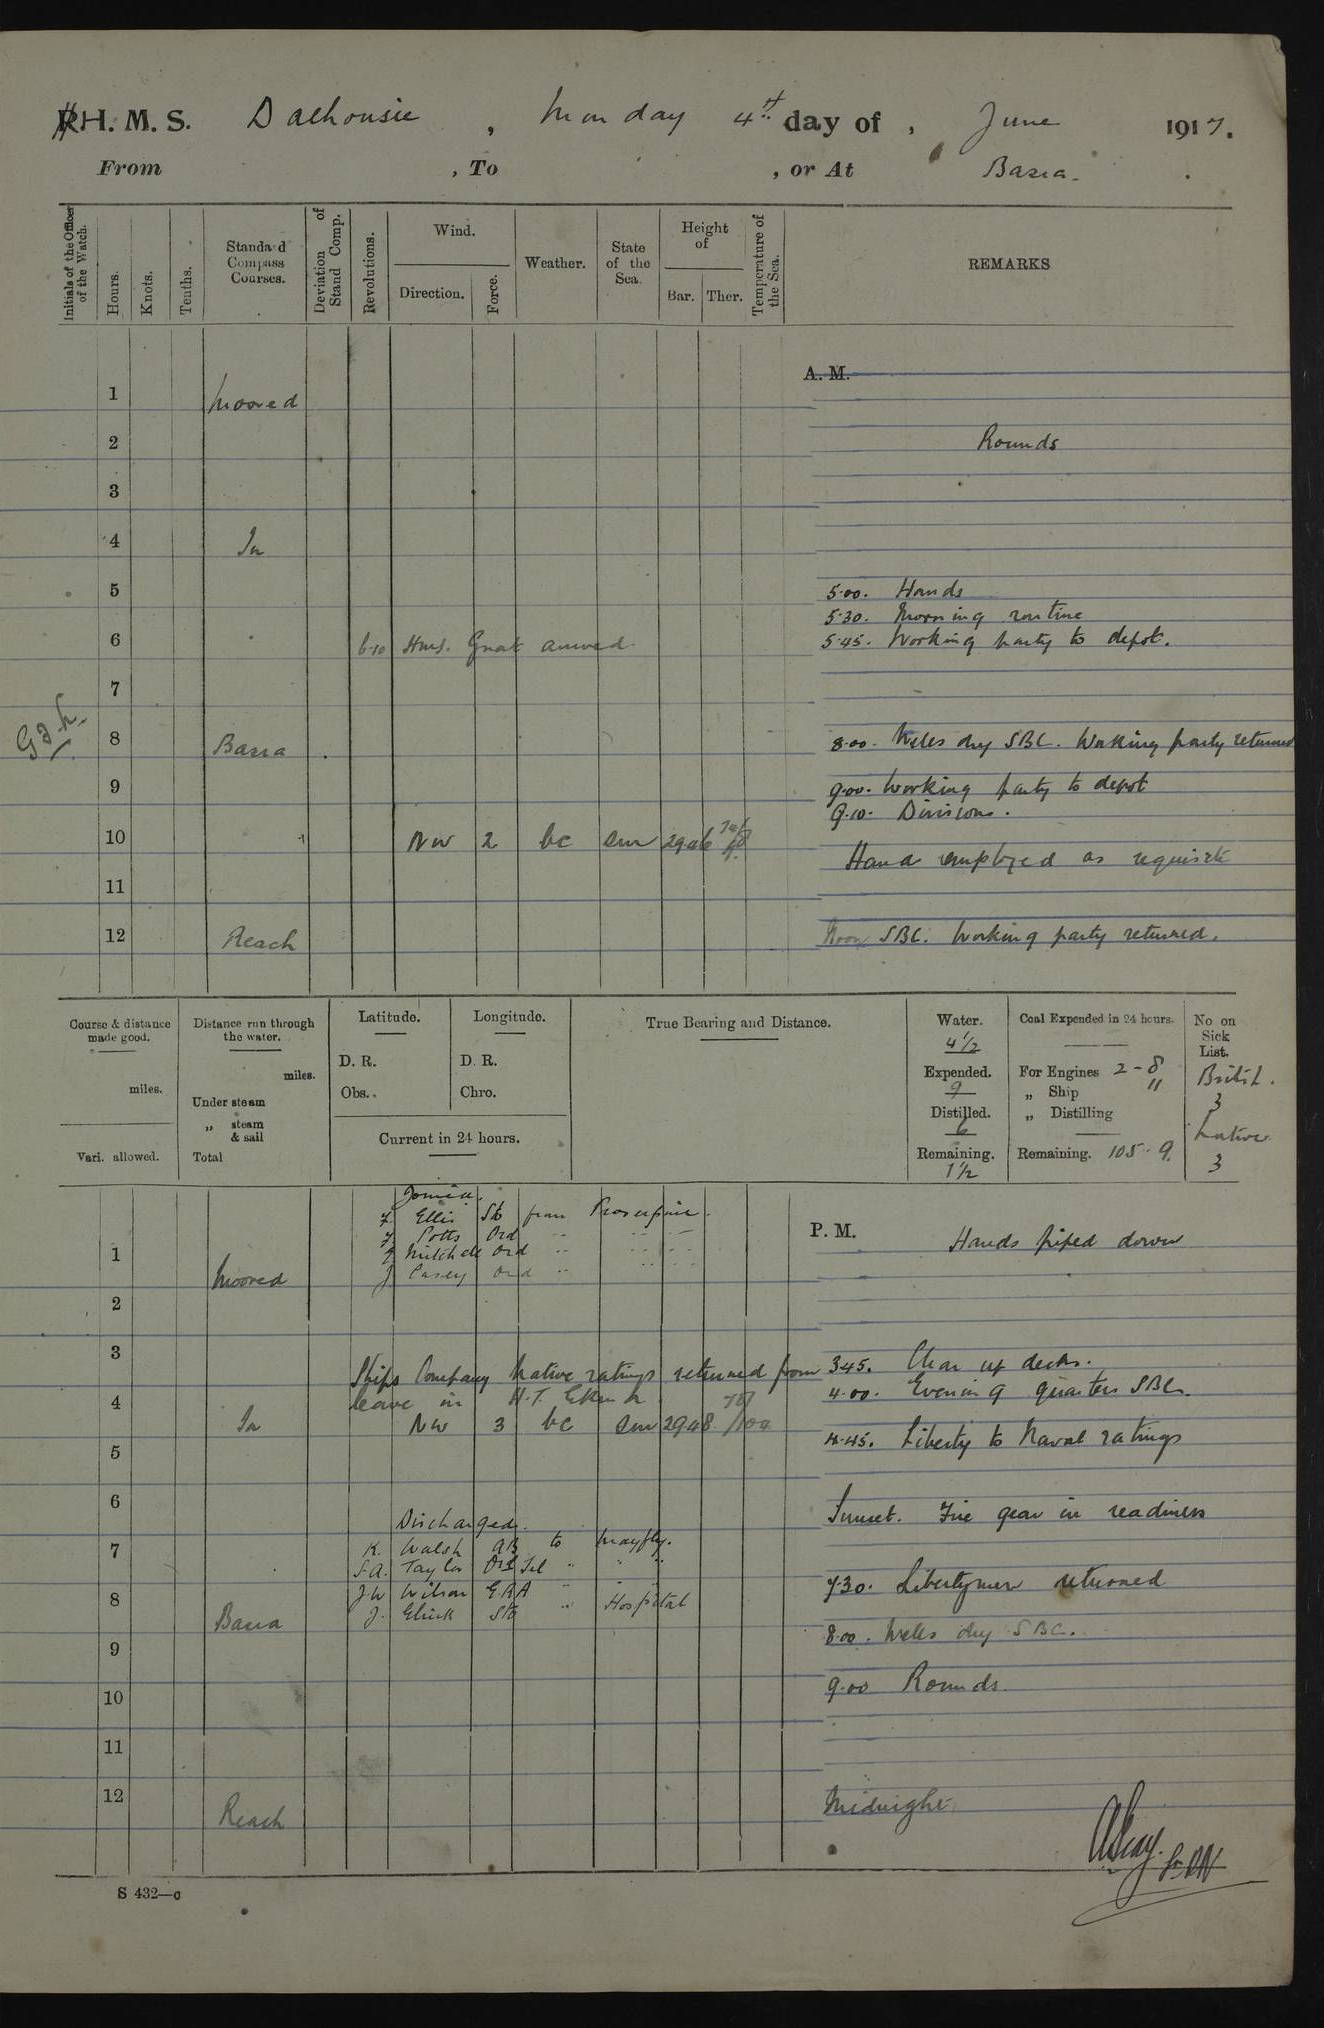 H. M. S. Dalhousie, Monday 4th day of, June 1917.
From , To , or At Basra.
Initials of the Officer of the Watch.
Hours.
Knots.
Tenths.
Standard Compass Courses.
Deviation of Stand Comp.
Revolutions.
Wind.
Direction.
Force.
Weather.
State of the Sea.
Height of
Bar. Ther.
Temperature of the Sea.
REMARKS
A. M.
1 Moored
2 Rounds
3
4 In
5 5.00. Hands
5.30. Morning routine
6 6.10 H.M.S. Gnat arrived 5.45. Working party to depot.
7
8 Basra 8.00. Wells dry SBC. Working party returned
9 9.00. Working party to depot
9.10. Divisions.
10 NW 2 bc sm 2946
Hand employed as requisite
11
12 Reach Noon SBC. Working party returned.
Course & distance made good.
miles.
Vari. allowed.
Distance run through the water.
miles.
Under steam
„ steam & sail
Total
Latitude.
D. R.
Obs..
Longitude.
D. R.
Chro.
Current in 24 hours.
True Bearing and Distance.
Water.
4½
Expended.
9
Distilled.
6
Remaining.
1½
Coal Expended in 24 hours.
For Engines 2-8
„ Ship "
„ Distilling
Remaining. 105.9.
No on Sick List.
British.
3
Native
3
Joined.
Ellis Sto from Proserpine.
Potts Ord " " "
Mitchell Ord " " "
J Casey Ord " " "
P. M. Hands piped down
1 Moored
2
3 3.45. Clear up decks.
Ships Company Native ratings returned from
4.00. Evening quarters SBC.
leave in H.T.
4 In NW 3 bc sm 2948 78/104
4.45. Liberty to Naval ratings
5
6 Sunset. Fire gear in readiness
Discharged.
7 K. Walsh AB to Mayfly.
S.A. Taylor Ord Tel " " "
7.30. Libertymen returned
J.W Wilson E.R.A " "
8 Basra J. Sto " Hospital
8.00. Wells dry SBC.
9
9.00 Rounds
10
11
12 Reach Midnight
S 432—c